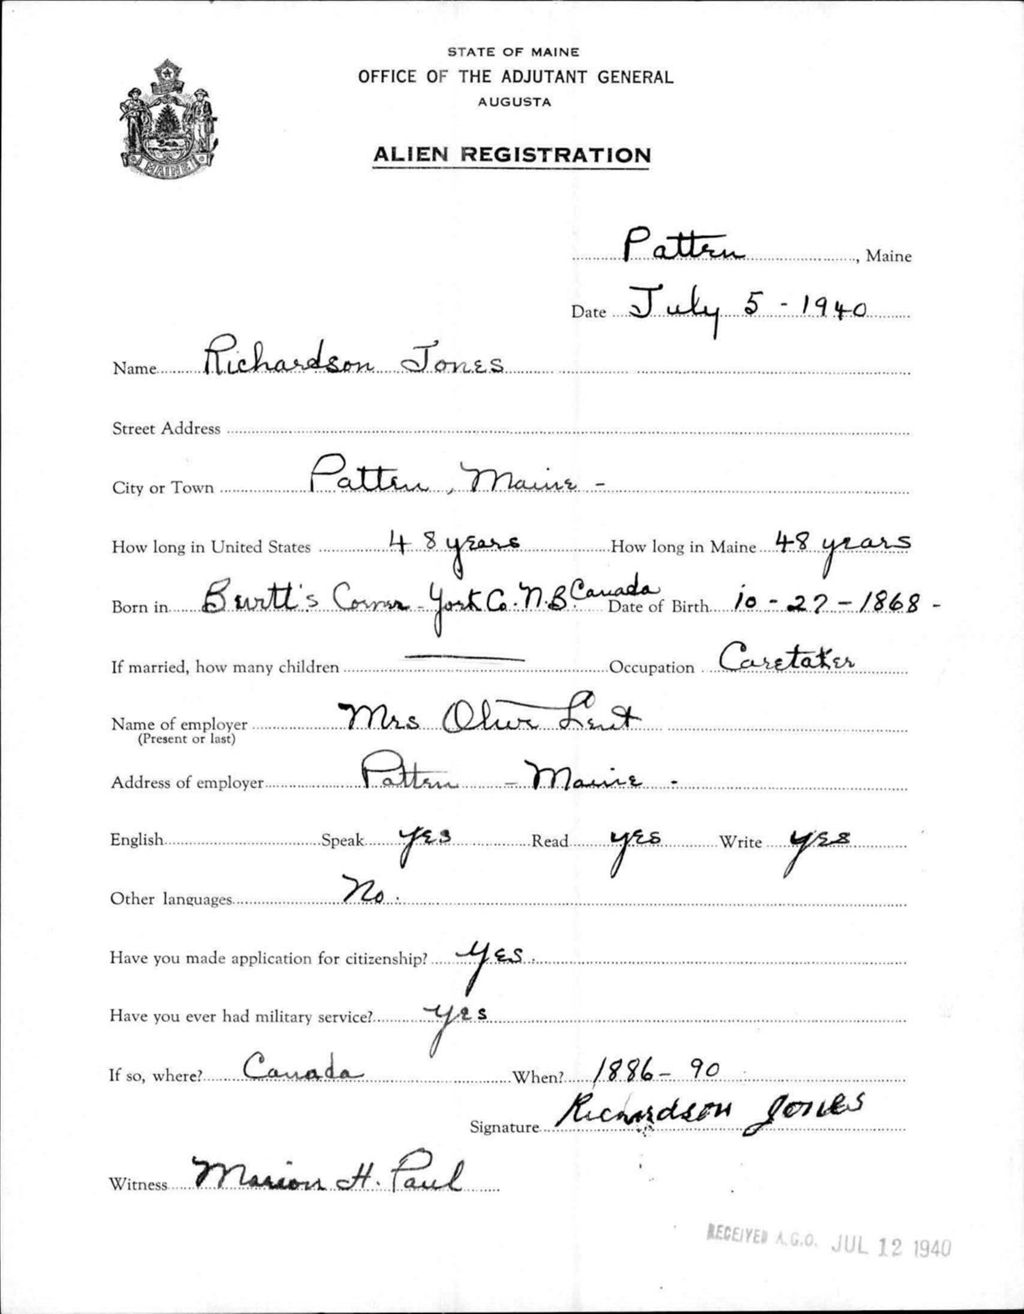 STATE OF MAINE
OFFICE OF THE ADJUTANT GENERAL
AUGUSTA
ALIEN REGISTRATION
MAINE
Patten, Maine
Date July 5 - 1940
Name Richardson Jones
Street Address
City or Town Patten, Maine -
How long in United States 48 years How long in Maine 48 years
Born in Burtt's Corner - York Co. N.B. Canada Date of Birth 10 - 27 - 1868 -
If married, how many children — Occupation Caretaker
Name of employer Mrs Olive Lent
(Present or last)
Address of employer Patten - Maine -
English Speak yes Read yes Write yes
Other languages No.
Have you made application for citizenship? yes.
Have you ever had military service? yes
If so, where? Canada When? 1886 - 90
Signature Richardson Jones
Witness Marion H. Paul
RECEIVED A.G.O. JUL 12 1940